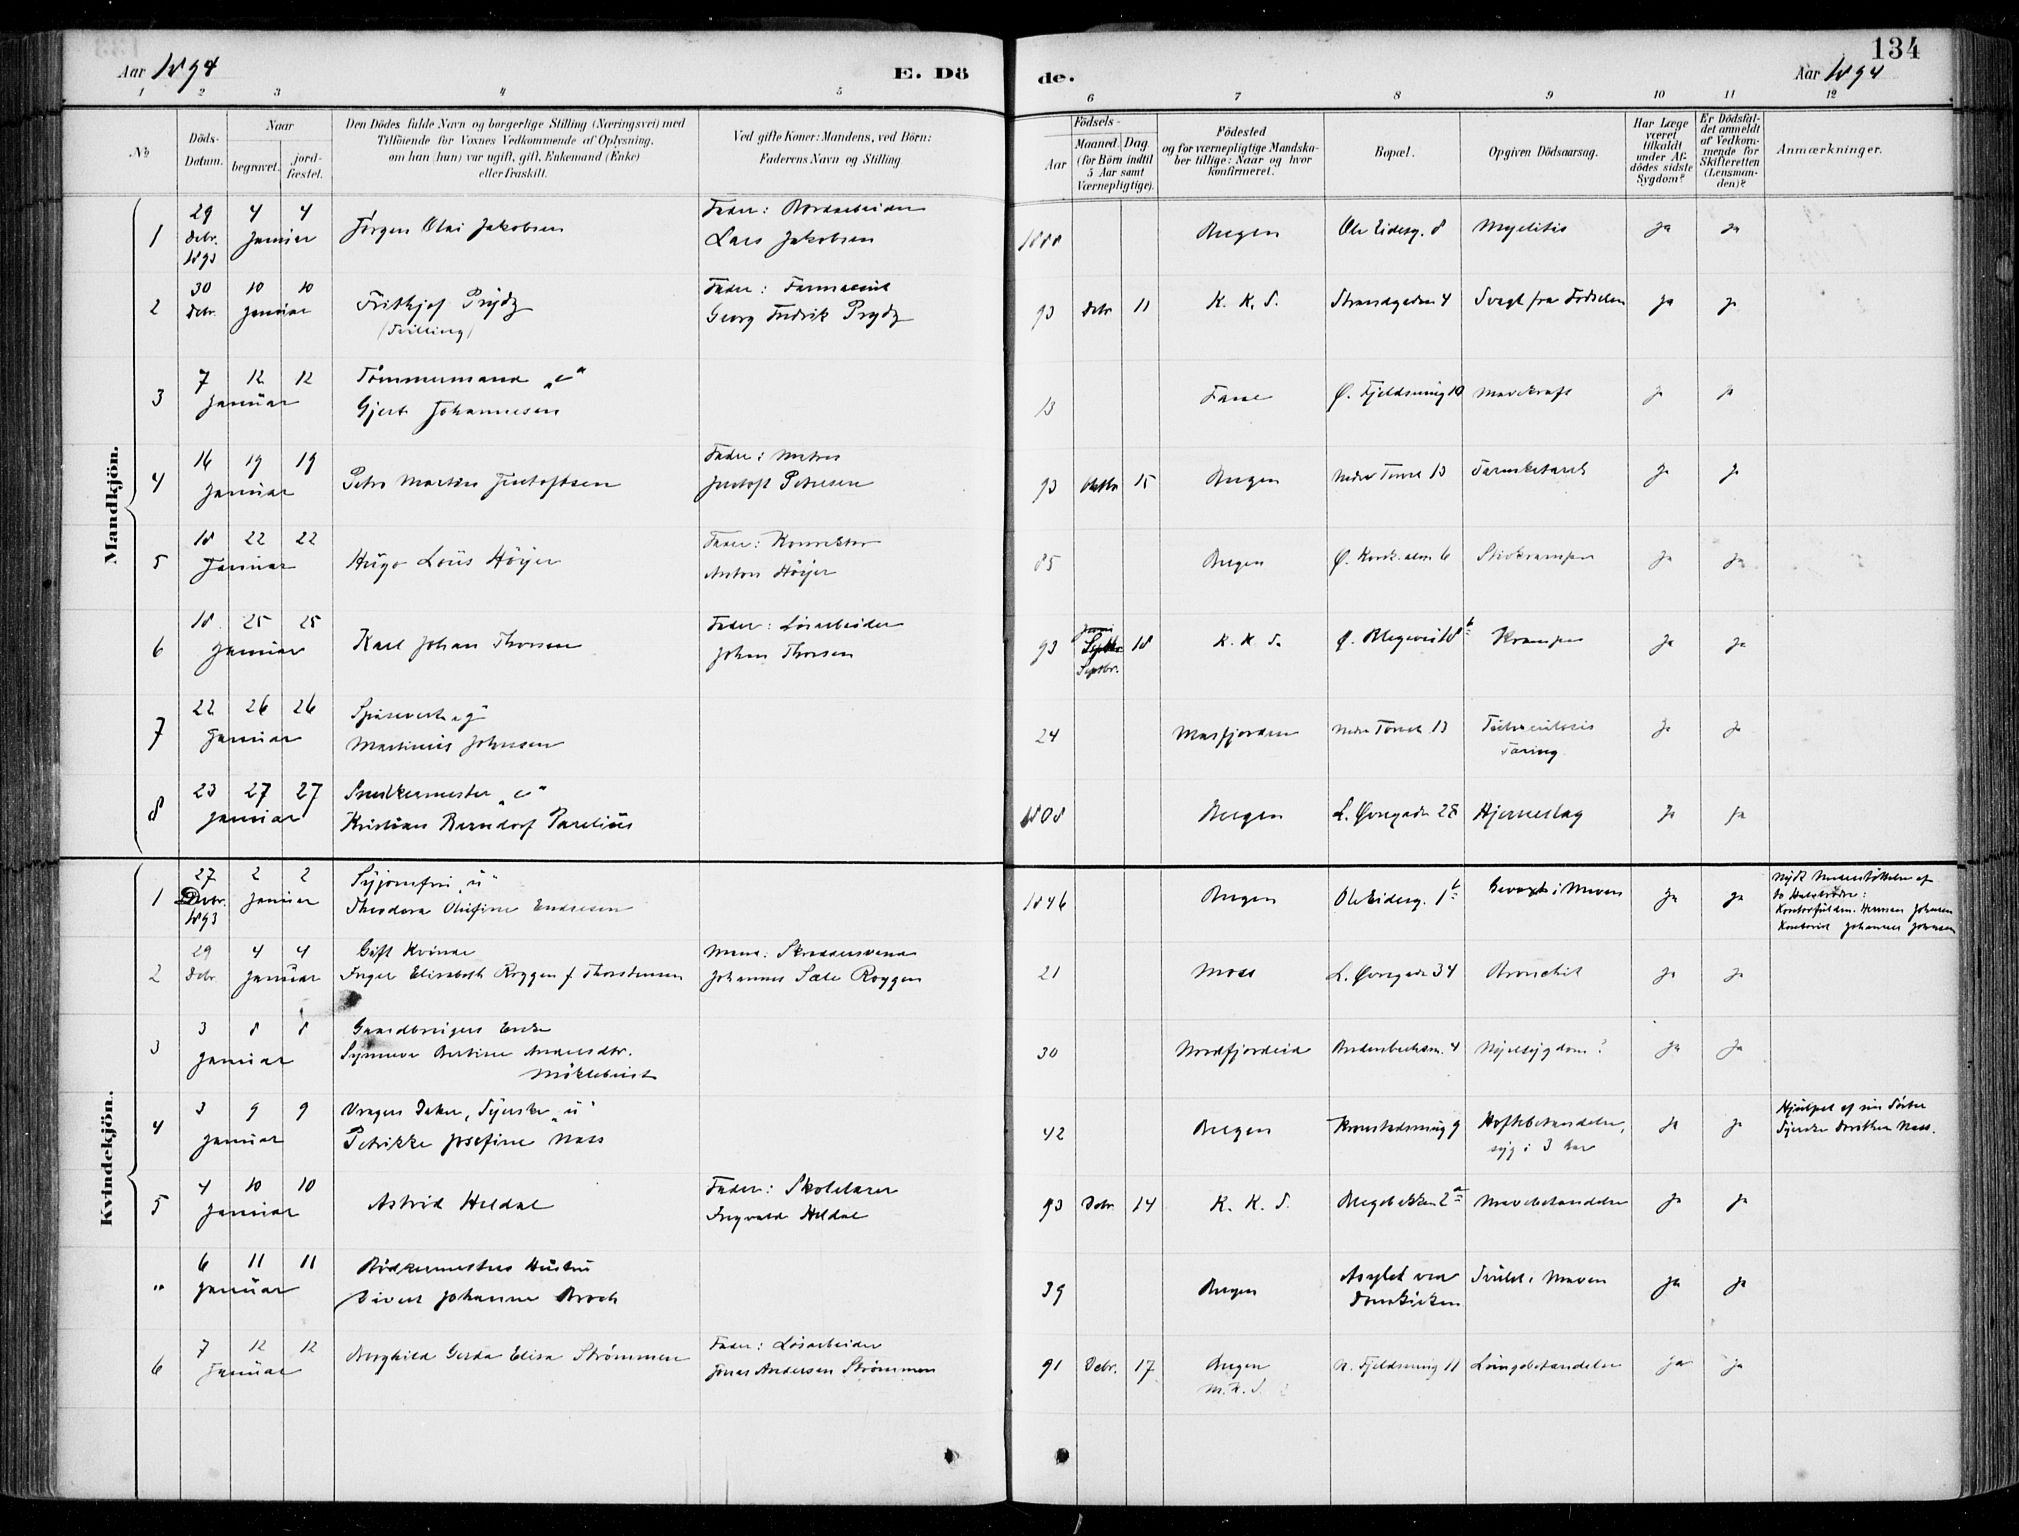 134
Aar 1894
E. Dö
de.
Aar 1894
1 2 3 4 5 6 7 8 9 10 11 12
No
Döds-Datum.
Naar
begravet.
jord-fæstet.
Den Dödes fulde Navn og borgerlige Stilling (Næringsvei) med
Tilföiende for Voxnes Vedkommende af Oplysning,
om han (hun) var ugift, gift, Enkemand (Enke)
eller fraskilt.
Ved gifte Koner: Mandens, ved Börn:
Faderens Navn og Stilling.
Födsels-
Aar
Maaned. Dag.
(for Börn indtil
5 Aar samt
Værnepligtige).
Födested
og for værnepligtige Mandska-
ber tillige: Naar og hvor
konfirmeret.
Bopæl.
Opgiven Dödsaarsag.
Har Læge
været
tilkaldt
under Af-
dödes sidste
Sygdom?
Er Dödsfal-
det anmeldt
af Vedkom-
mende for
Skifteretten
(Lensman-
den)?
Anmærkninger.
Mandkjön.
1 29 Debr. 1893 4 4 Januar Jørgen Olai Jakobsen Fader: Bordarbeider Lars Jakobsen 1888 Bergen Ole Eidesg. 8 Myelitis Ja Ja
2 30 Debr. 10 10 Januar Frithjof Prydz (Tvilling) Fader: Farmaceut Georg Fredrik Prydz 93 Debr 11 K. K. S. Strandgaden 4 Svagt fra Fødselen Ja Ja
3 7 12 12 Januar Tømmermand „e“ Gjert Johannesen 13 Fane Ø. Fjeldsmug 10 Mavekræft Ja Ja
4 16 19 19 Januar Petro Martin Gustafsen Fader: Matros Gustaf Petersen 93 Oktbr 15 Bergen Nedre 13 Tarmkatarrh Ja Ja
5 18 22 22 Januar Hugo Louis Höyer Fader: Konrektor Anton Höyer 85 Bergen Ø. Kirk. alm. 6 Ja Ja
6 18 25 25 Januar Karl Johan Thorsen Fader: Løsarbeider Johan Thorsen 93 Septbr. 18 K. K. S. Ø. Blegevei 18 b Krampe Ja Ja
7 22 26 26 Januar Martinus Johnsen 24 Masfjorden Nedre 13 Tuberculosis Tæring Ja Ja
8 23 27 27 Januar Snedkermester „e“ Kristian Berndorf Parelius 1808 Bergen L. Øvregade 28 Hjerneslag Ja Ja
Kvindekjön.
1 27 Debr. 1893 2 2 Januar Syjomfru „u“ Theodora Olufine Endresen 1846 Bergen Ole Eidesg. 1 b Gevæxt i Maven Ja Ja Nydt Understøttelse af
to Halvbrødre:
Kontorfuldm. Herman Johnsen
Kontorist Johannes Johnsen
2 29 Debr. 4 4 Januar Gift Kvinde Inger Elisabeth Roggen f. Thorstensen Mand: Skræddersvend Johannes Sæle Roggen 21 Moss L. Øvregade 34 Bronchit Ja Ja
3 3 8 8 Januar Gaardbrugers Enke Synneva Bertine Andersdtr. Myklebust 30 Nordfjordeid 4 Nyresygdom? Ja Ja
4 3 9 9 Januar Vragers Datter, Syerske „u“ Petrikke Josefine Næss 42 Bergen Kronstadsmug 9 Hoftebetændelse, syg i 3 Aar Ja Ja Hjulpet af sin Søster
Syerske Dorothea Næss.
5 4 10 10 Januar Astrid Heldal Fader: Skolelærer Ingvald Heldal 93 Debr. 14 K. K. S. Blegebakken 2 a Mavebetændelse Ja Ja
" 6 11 11 Januar Bødkermesters Hustru Sivert Johanne Broch 39 Bergen Asylet ved Domkirken Svulst i Maven Ja Ja
6 7 12 12 Januar Borghild Gerda Elisa Strømmen Fader: Løsarbeider Jonas Andersen Strømmen 91 Debr. 17 Bergen M. K. S. N. Fjeldsmug 11 Lungebetændelse Ja Ja